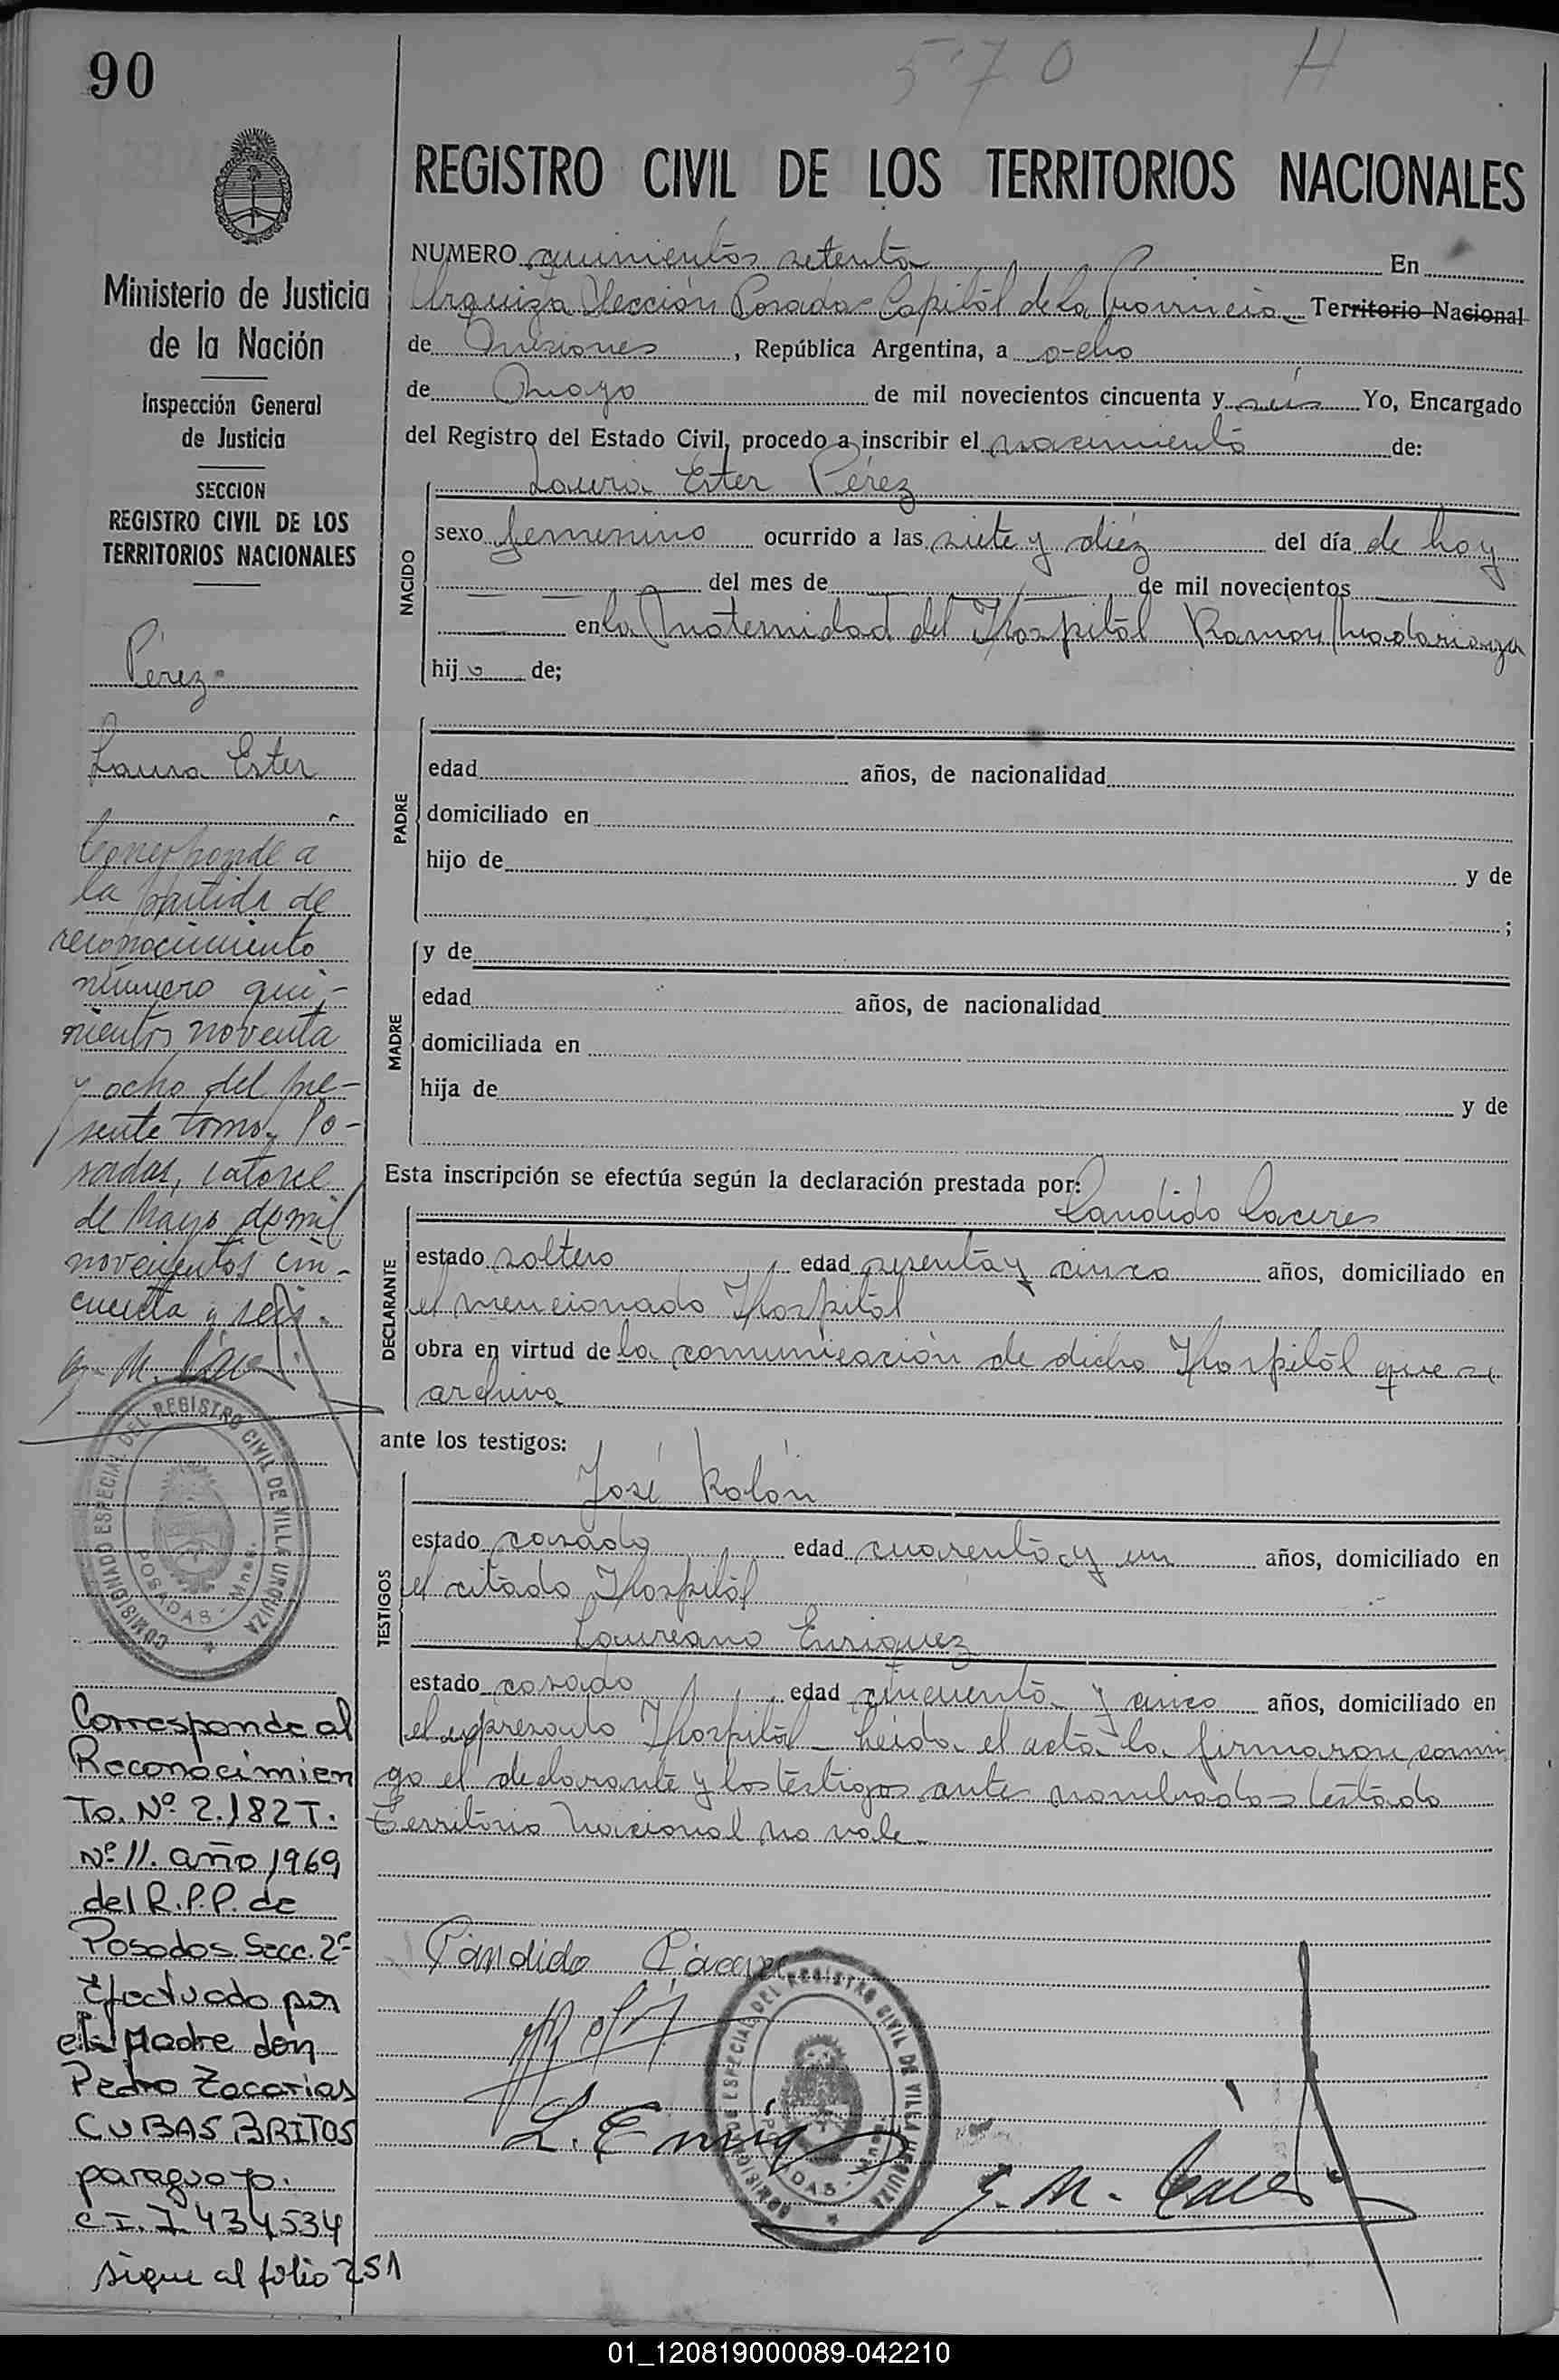 90
570 H
REGISTRO CIVIL DE LOS TERRITORIOS NACIONALES
Ministerio de Justicia
de la Nación
Inspección General
de Justicia
SECCION
REGISTRO CIVIL DE LOS
TERRITORIOS NACIONALES
Pérez
Laura Ester
Corresponde a
la partida de
reconocimiento
número qui-
nientos noventa
y ocho del pre-
sente tomo, Po-
sadas, catorce
de Mayo de mil
novecientos cin-
cuenta y seis.
COMISIONADO ESPECIAL DEL REGISTRO CIVIL DE VILLA URQUIZA
POSADAS - Mnes.
Corresponde al
Reconocimien
To. Nº 2.182 T.
Nº 11. año 1969
del R.P.P. de
Posadas Secc. 2ª
Efectuado por
el Padre don
Pedro Zacarias
CUBAS BRITOS
paraguayo.
C.I. 7434534
sigue al folio 251
NUMERO quinientos setenta En
Urquiza Sección Posadas Capital de la Provincia Territorio Nacional
de Misiones, República Argentina, a ocho
de Mayo de mil novecientos cincuenta y seis Yo, Encargado
del Registro del Estado Civil, procedo a inscribir el nacimiento de:
Laura Ester Pérez
NACIDO
sexo femenino ocurrido a las siete y diéz del día de hoy
del mes de de mil novecientos
en la Maternidad del Hospital Ramon Madariaga
hija de;
PADRE
edad años, de nacionalidad
domiciliado en
hijo de y de
;
MADRE
y de
edad años, de nacionalidad
domiciliada en
hija de y de
Esta inscripción se efectúa según la declaración prestada por:
Candido Caceres
DECLARANTE
estado soltero edad sesenta y cinco años, domiciliado en
el mencionado Hospital
obra en virtud de la comunicación de dicho Hospital que se
archiva
ante los testigos:
José Rolón
TESTIGOS
estado casado edad cuarenta y un años, domiciliado en
el citado Hospital
Laureano Enriquez
estado casado edad cincuenta y cinco años, domiciliado en
el expresado Hospital Leida el acta la firmaron conmi
go el declarante y los testigos antes nombrados testado
territorio nacional no vale
Cándido Cáceres
L. Enriq
COMISIONADO ESPECIAL DEL REGISTRO CIVIL DE VILLA URQUIZA
POSADAS - Mnes.
01_120819000089-042210